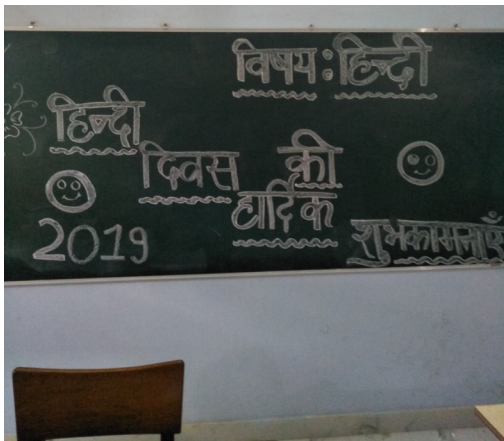 विषय : हिन्दी
हिन्दी
दिवस की
हार्दिक
शुभकामनाएँ
2019